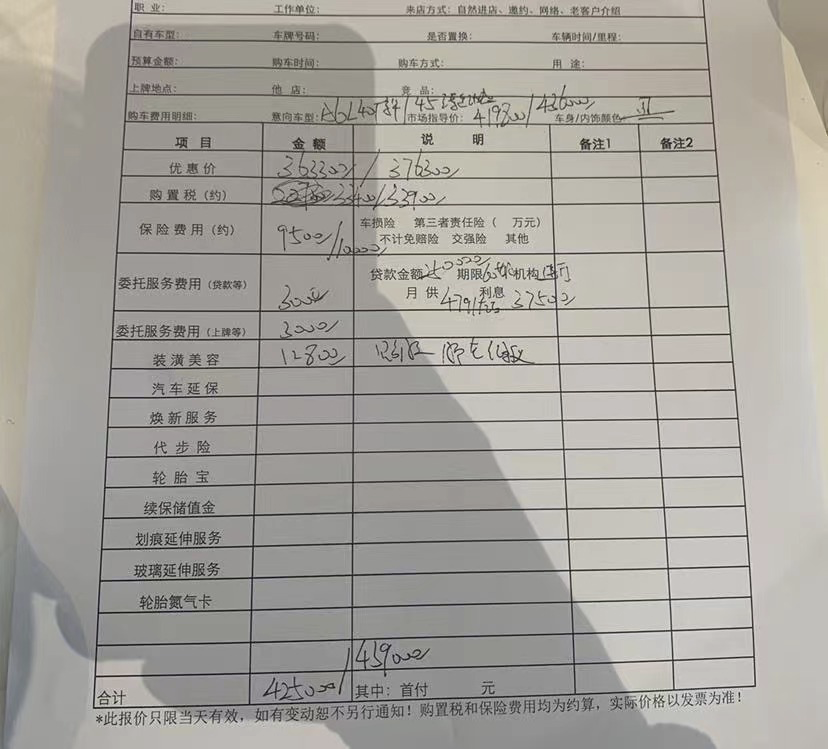 职 业： 工作单位： 来店方式：自然进店、邀约、网络、老客户介绍
自有车型： 车牌号码： 是否置换： 车辆时间/里程：
预算金额： 购车时间： 购车方式： 用 途：
上牌地点： 他 店： 竞 品：
购车费用明细： 意向车型：A6L 40T /45 市场指导价：419800/436000 车身/内饰颜色
项 目 金 额 说 明 备注1 备注2
优 惠 价 363300/376300
购 置 税（约） /33900
保 险 费 用（约） 9500/10000 车损险 第三者责任险（ 万元） 不计免赔险 交强险 其他
委托服务费用（贷款等） 3000 贷款金额250000 期限 机构 月 供 4791 利息 37500
委托服务费用（上牌等） 3000
装 潢 美 容 12800
汽 车 延 保
焕 新 服 务
代 步 险
轮 胎 宝
续保储值金
划痕延伸服务
玻璃延伸服务
轮胎氮气卡
合计 425000/439000 其中：首付 元
*此报价只限当天有效，如有变动恕不另行通知！购置税和保险费用均为约算，实际价格以发票为准！